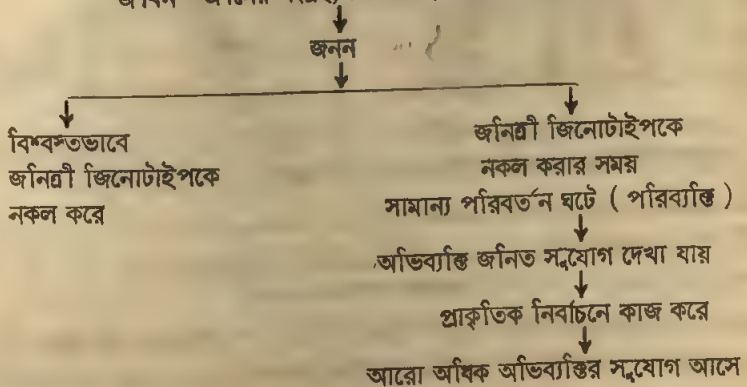 জনন
বিশ্বস্তভাবে
জনিত্রী জিনোটাইপকে
নকল করে
জনিত্রী জিনোটাইপকে
নকল করার সময়
সামান্য পরিবর্তন ঘটে ( পরিব্যক্তি )
অভিব্যক্তি জনিত সুযোগ দেখা যায়
প্রাকৃতিক নির্বাচনে কাজ করে
আরো অধিক অভিব্যক্তির সুযোগ আসে